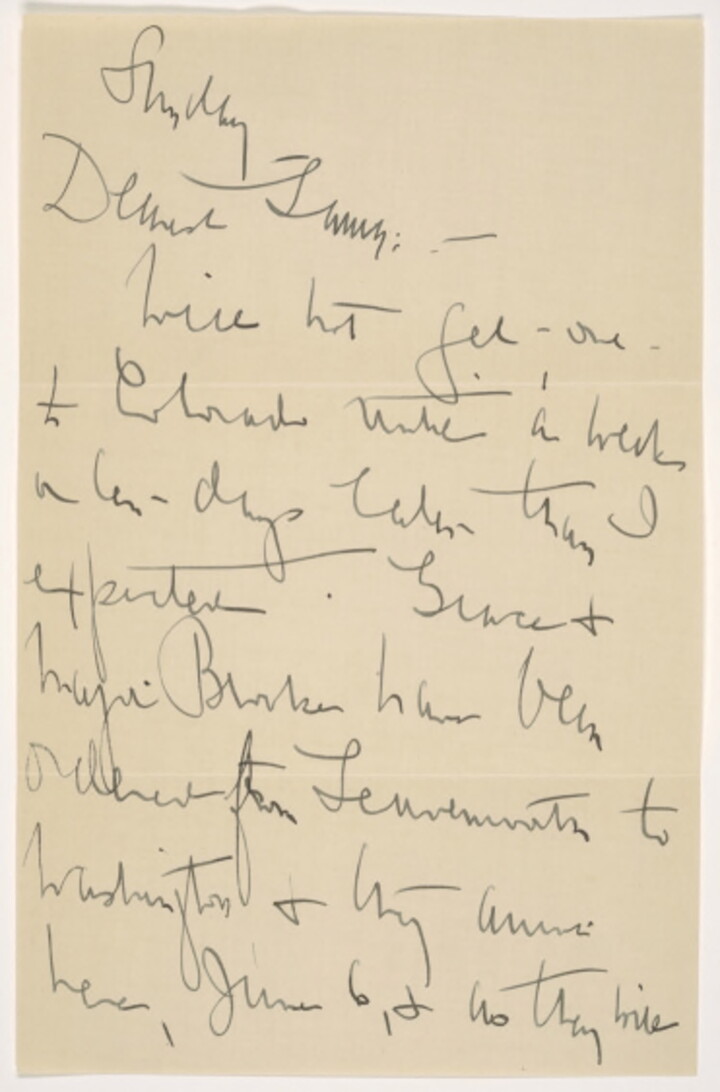 Sunday
Dearest Fanny: -
Will not get - out -
to Colorado until a week
or ten - days later than I
expected. Grace &
Major Brookes have been
ordered from Leavenworth to
Washington & they arrive
here, June 6, & so they will